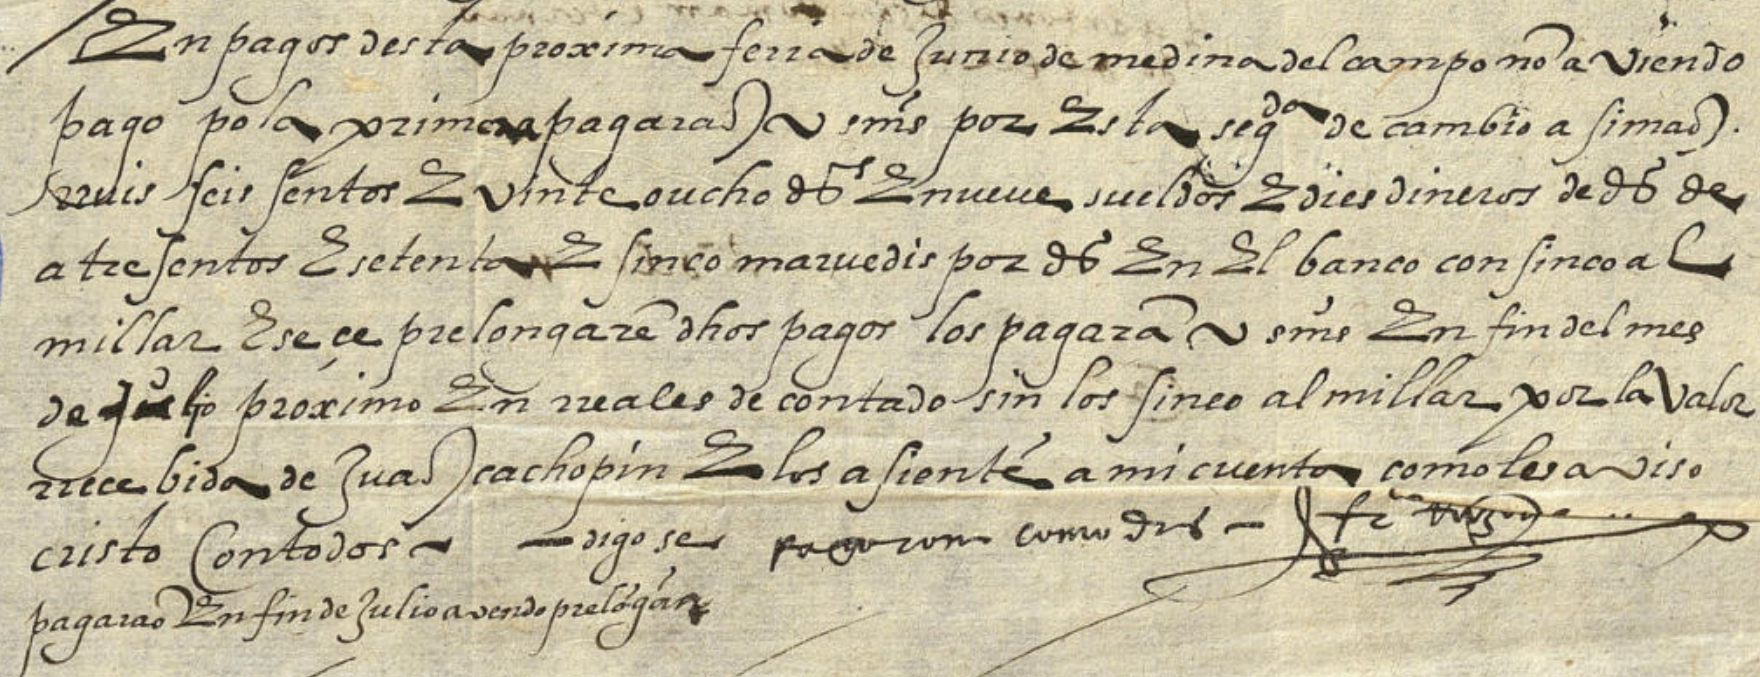 En pagos desta próxima feria de Junio de medina del campo no aviendo
pago pola primera pagaran v sms por Esta segda de cambio a simao
rruis seissentos E vinte oucho ds E nueve sueldos E dies dineros de ds de
a tresentos E setenta E sinco marvedis por ds En El banco con sinco al
millar E se çe prelongarē dhos pagos los pagarā v sms En fin del mes
de Juljo próximo En reales de contado sin los sinco al millar por la valor
rrecebida de Juan cachopin E los asienté a mi cuenta como les aviso
cristo Con todos – digo se pagaron como dis –
pagarao En fin de Julio avendo prelōgar